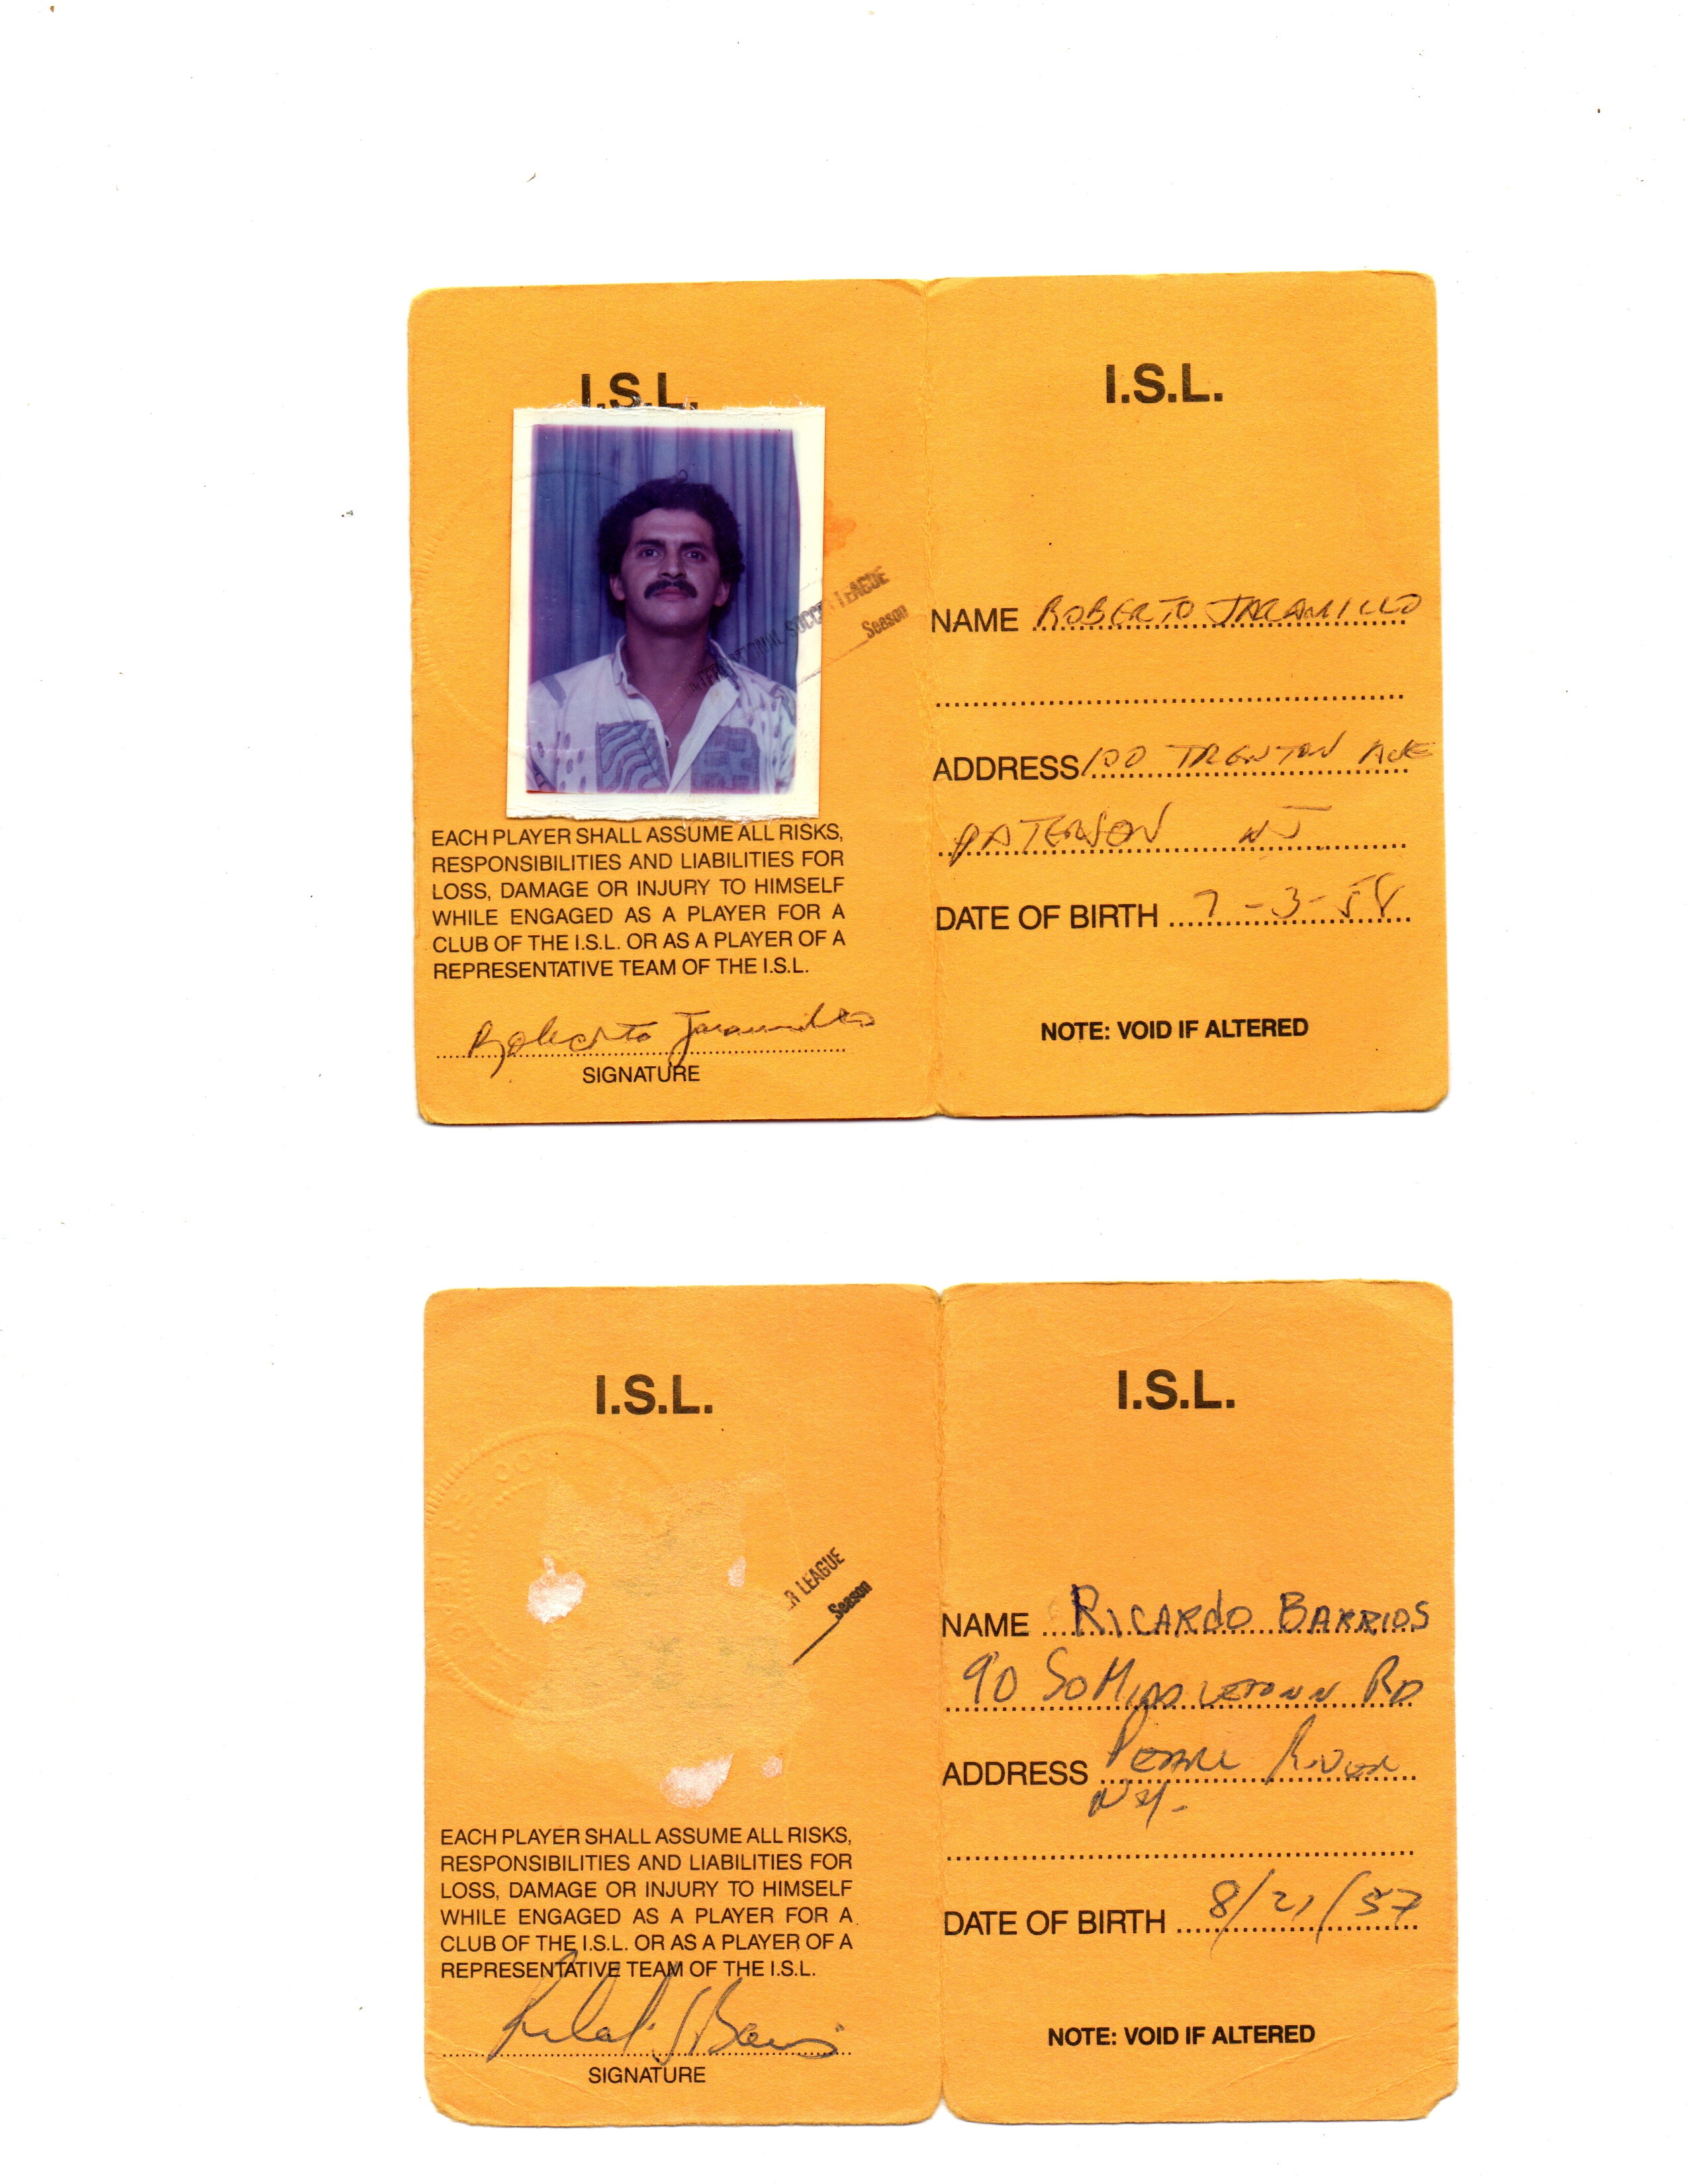 I.S.L.
INTERNATIONAL SOCCER LEAGUE
Season
EACH PLAYER SHALL ASSUME ALL RISKS,
RESPONSIBILITIES AND LIABILITIES FOR
LOSS, DAMAGE OR INJURY TO HIMSELF
WHILE ENGAGED AS A PLAYER FOR A
CLUB OF THE I.S.L. OR AS A PLAYER OF A
REPRESENTATIVE TEAM OF THE I.S.L.
Roberto Jaramillo
SIGNATURE
I.S.L.
NAME ROBERTO JARAMILLO
ADDRESS 100 TRENTON AVE
PATERSON NJ
DATE OF BIRTH 7-3-58
NOTE: VOID IF ALTERED
I.S.L.
R LEAGUE
Season
EACH PLAYER SHALL ASSUME ALL RISKS,
RESPONSIBILITIES AND LIABILITIES FOR
LOSS, DAMAGE OR INJURY TO HIMSELF
WHILE ENGAGED AS A PLAYER FOR A
CLUB OF THE I.S.L. OR AS A PLAYER OF A
REPRESENTATIVE TEAM OF THE I.S.L.
SIGNATURE
I.S.L.
NAME RICARDO BARRIOS
90 SO MIDDLETOWN RD
ADDRESS PEARL RIVER
NY.
DATE OF BIRTH 8/21/57
NOTE: VOID IF ALTERED